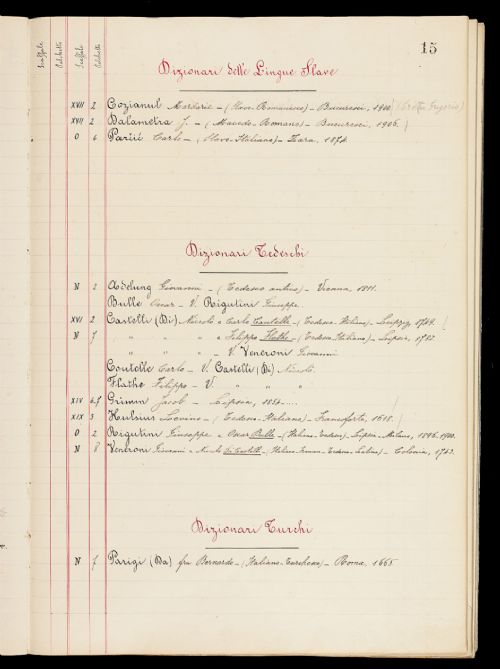 15
Scaffale Palchetto Scaffale Palchetto
Dizionari delle Lingue Slave
XVII 2 Cozianul Mardarie - (Slavo-Romanesco) - Bucuresci, 1900.
XVII 2 Dalametra J. - (Macedo-Romano) - Bucuresci, 1906.
O 6 Parčić Carlo - (Slavo-Italiano) - Zara, 1874.
Dizionari Tedeschi
N 2 Adelung Giovanni - (Tedesco antico) - Vienna, 1811.
Bulle Oscar - V. Rigutini Giuseppe.
XVI 2 Castelli (Di) Niccolò e Carlo Coutelle - (Tedesco-Italiano) - Leipzig, 1749.
N 7 " " " e Filippo Flathe - (Tedesco-Italiano) - Leipsia, 1782.
" " " - V. Veneroni Giovanni
Coutelle Carlo - V. Castelli (Di) Niccolò.
Flathe Filippo - V. " " "
XIV 6.7 Grimm Jacob - Lipsia, 1854-....
XIX 3 Hulsius Levino - (Tedesco-Italiano) - Francoforte, 1618.
O 2 Rigutini Giuseppe e Oscar Bulle - (Italiano-Tedesco) - Lipsia-Milano, 1896-1900.
N 8 Veneroni Giovanni e Nicolò Di Castelli - (Italiano-Francese-Tedesco-Latino) - Colonia, 1743.
Dizionari Turchi
N 7 Parigi (Da) fra Bernardo - (Italiano-Turchesco) - Roma, 1665.